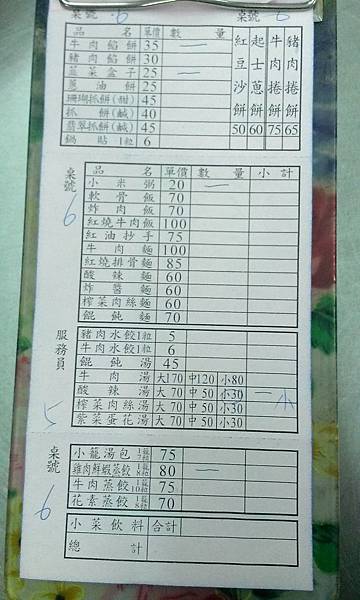 桌號 6 桌號 6
品名 單價 數量
牛肉餡餅 35 一
豬肉餡餅 30
韮菜盒子 25 一
蔥油餅 25
珊瑚抓餅(甜) 45
抓餅(鹹) 40
翡翠抓餅(鹹) 45
鍋貼 1粒 6
紅豆沙餅 50
起士蔥餅 60
牛肉捲餅 75
豬肉捲餅 65
桌號 6
品名 單價 數量 小計
小米粥 20 一
軟骨飯 70
炸肉飯 70
紅燒牛肉飯 100
紅油抄手 75
牛肉麵 100
紅燒排骨麵 85
酸辣麵 60
炸醬麵 60
榨菜肉絲麵 60
餛飩麵 70
服務員 5
豬肉水餃1粒 5
牛肉水餃1粒 6
餛飩湯 45
牛肉湯 大170 中120 小80
酸辣湯 大70 中50 小30 一小
榨菜肉絲湯 大70 中50 小30
紫菜蛋花湯 大70 中50 小30
桌號 6
小籠湯包 75
雞肉鮮蝦蒸餃 80 一
牛肉蒸餃 75
花素蒸餃 70
小菜飲料 合計
總計